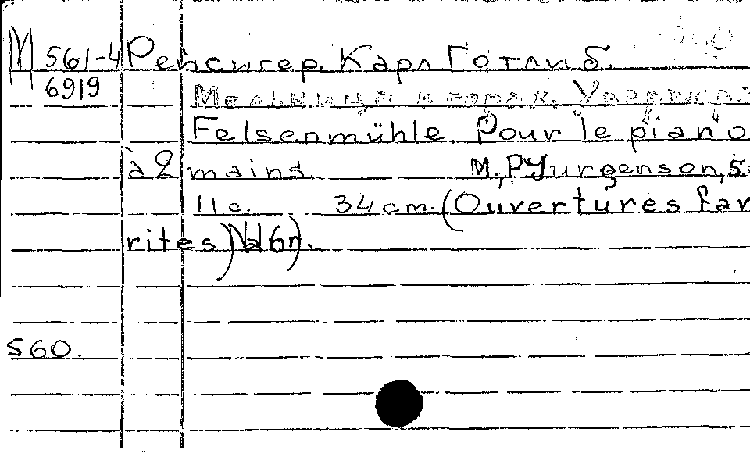 М 561-4 Рейсигер, Карл Готлиб.
6919 Мельница в горах. Увертюра
Felsenmühle. Pour le piano
à 2 mains. M., P. Jurgenson, s.
11 с. 34 см. (Ouvertures fav
rites)
560.